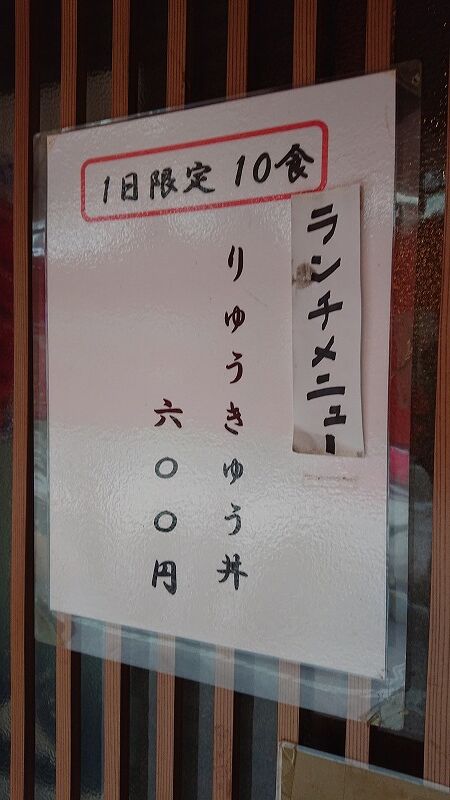 1日限定 10食
ランチメニュー
りゅうきゅう丼
六〇〇円